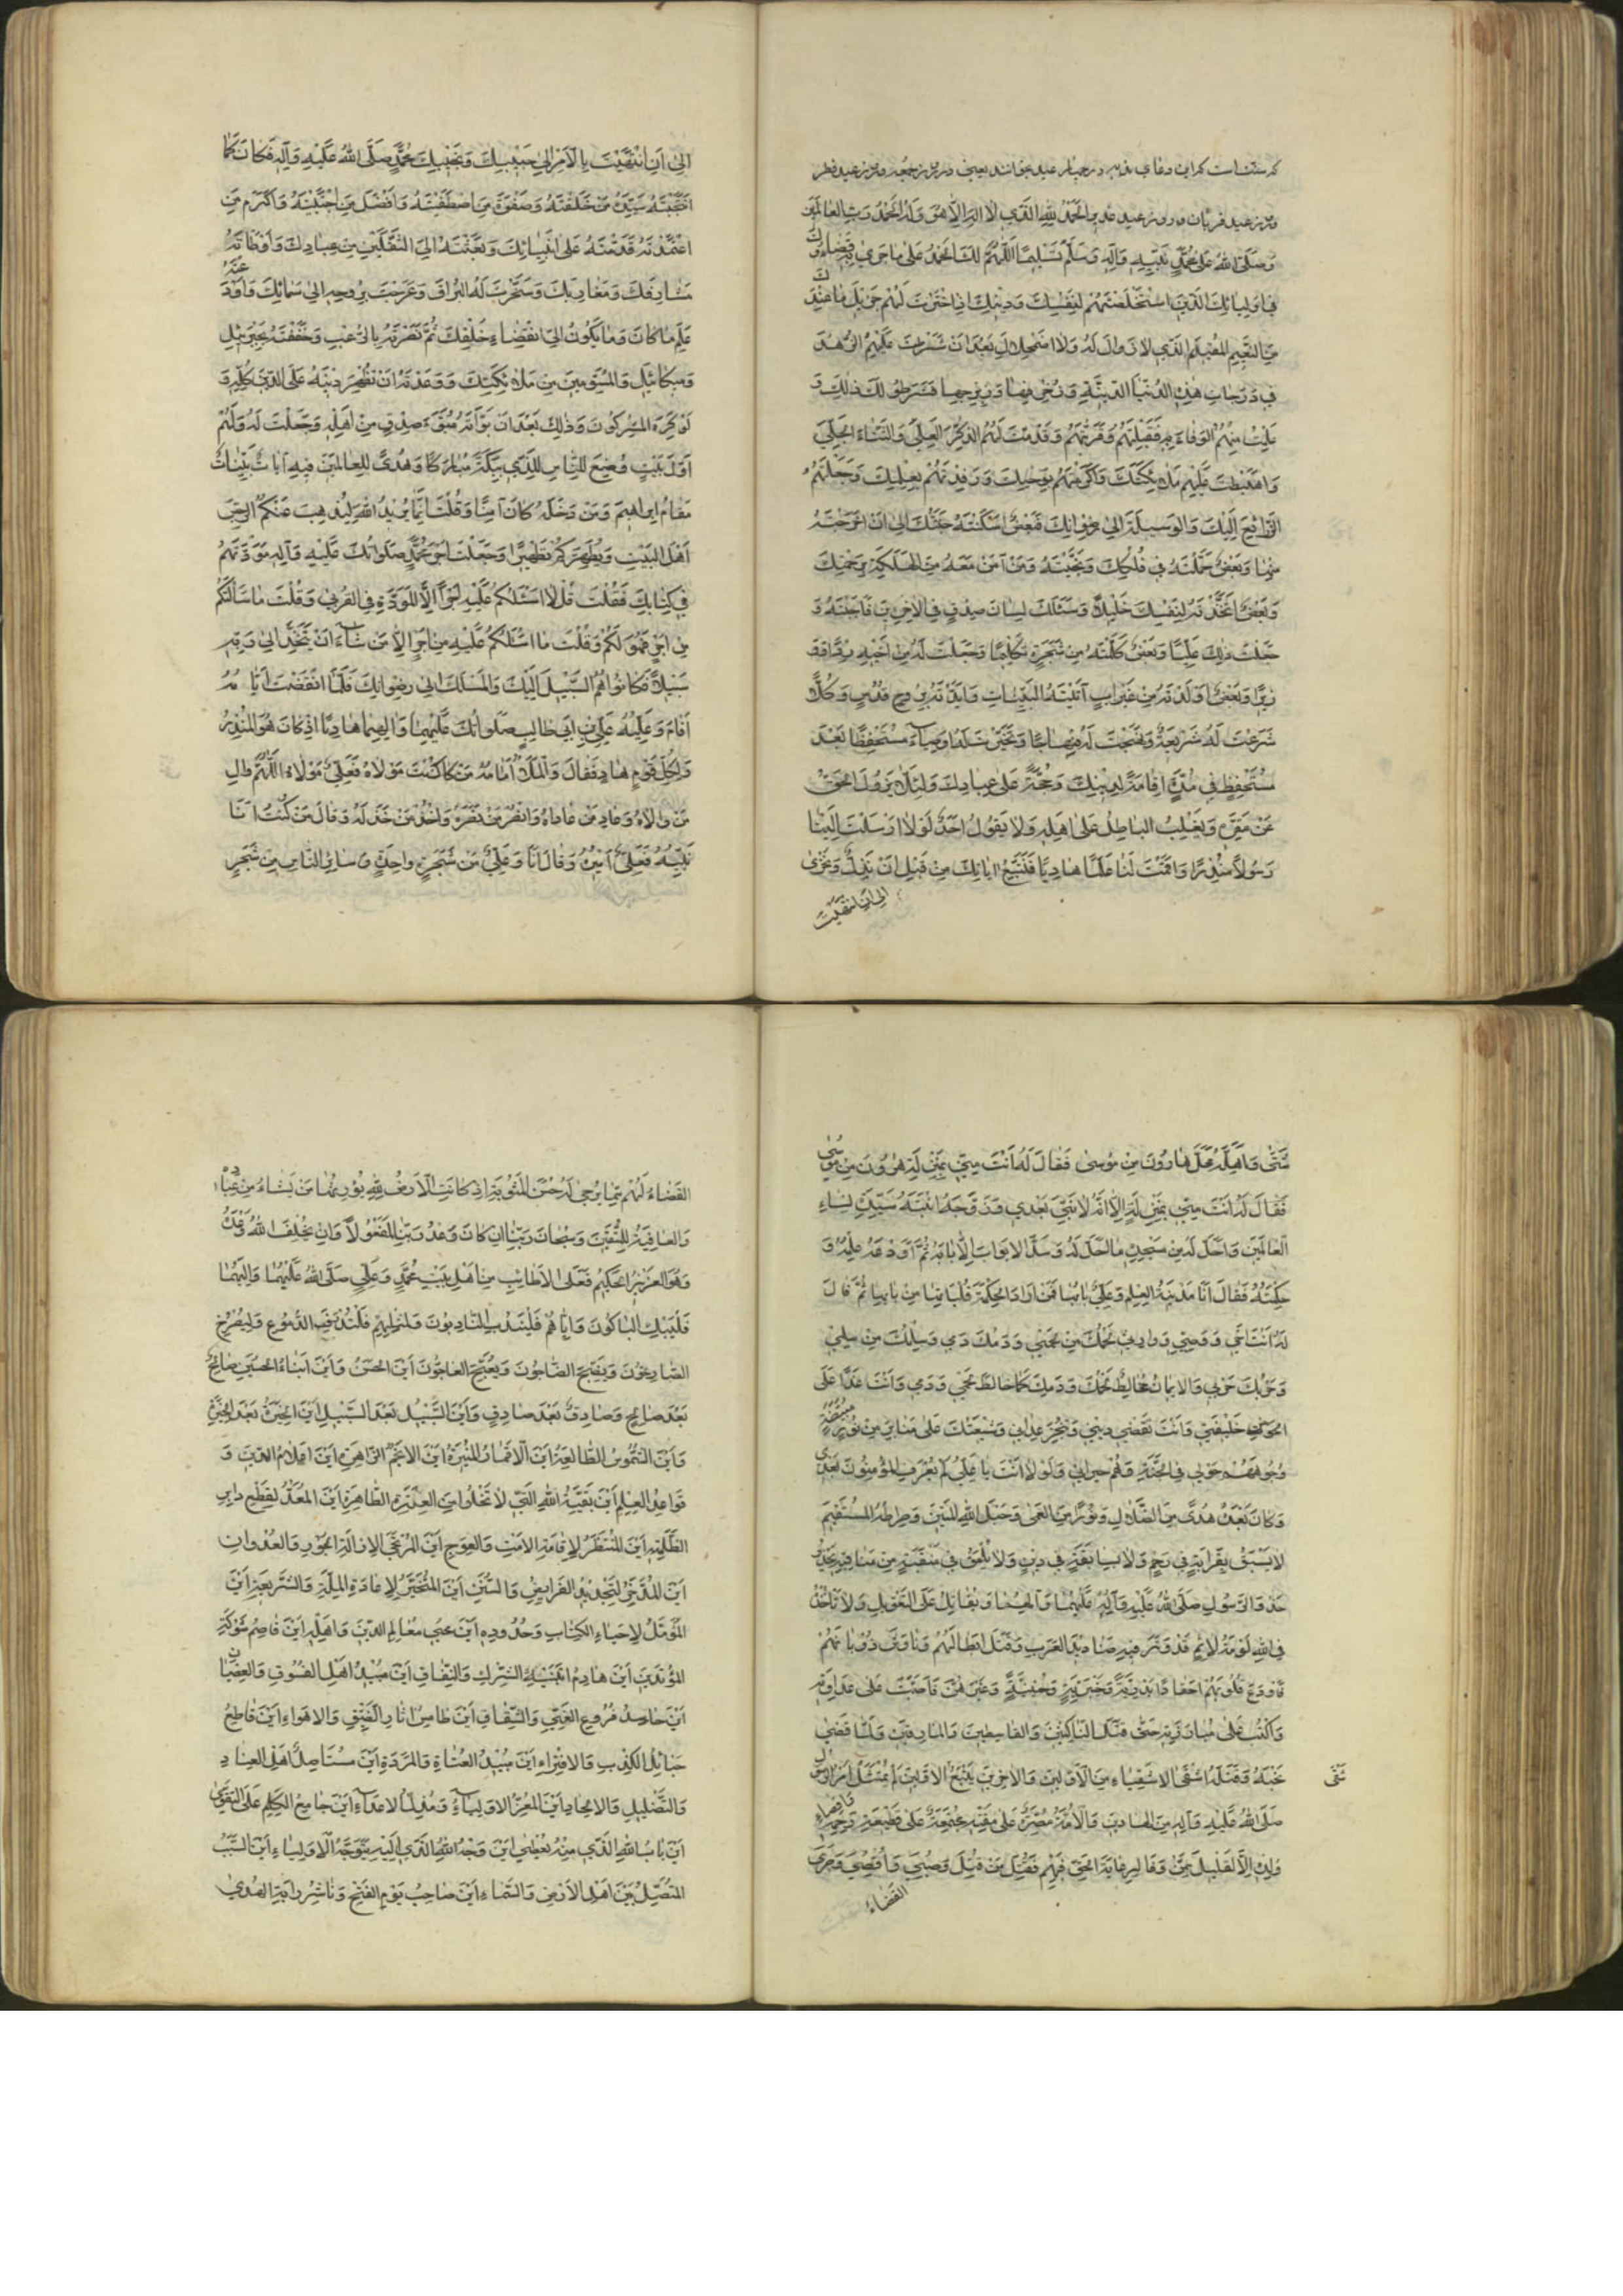 که سنت است که این دعای ندبه در چهار عید بخوانند یعنی در روز جمعه و روز عید فطر
و روز عید قربان و روز عید غدیر الحمد لله الذی لا اله الا هو وله الحمد رب العالمین
و صلی الله علی محمد نبیه وآله وسلم تسلیما اللهم لک الحمد علی ما جری به قضاؤک
فی اولیائک الذین استخلصتهم لنفسک ودینک اذ اخترت لهم جزیل ما عندک
من النعیم المقیم الذی لا زوال له ولا اضمحلال بعد ان شرطت علیهم الزهد
فی درجات هذه الدنیا الدنیة وزخرفها وزبرجها فشرطوا لک ذلک و
علمت منهم الوفاء به فقبلتهم وقربتهم وقدمت لهم الذکر العلی والثناء الجلی
واهبطت علیهم ملائکتک واکرمتهم بوحیک ورفدتهم بعلمک وجعلتهم
الذرایع الیک والوسیلة الی رضوانک فبعض اسکنته جنتک الی ان اخرجته
منها وبعض حملته فی فلکک ونجیته ومن آمن معه من الهلکة برحمتک
وبعض اتخذته لنفسک خلیلا وسئلک لسان صدق فی الاخرین فاجبته و
جعلت ذلک علیا وبعض کلمته من شجرة تکلیما وجعلت له من اخیه ردءا و
وزیرا وبعض اولدته من غیر اب آتیته البینات وایدته بروح قدس وکلا
شرعت له شریعة ونهجت له منهاجا وتخیرت له اوصیاء مستحفظا بعد
مستحفظ من مدة اقامة لدینک وحجة علی عبادک ولئلا یزول الحق
عن مقره ویغلب الباطل علی اهله ولا یقول احد لولا ارسلت الینا
رسولا منذرا واقمت لنا علما هادیا فنتبع ایاتک من قبل ان نذل ونخزی
الی ان انتهیت
الی ان انتهیت بالامر الی حبیبک ونجیبک محمد صلی الله علیه وآله فکان کما
انتجبته سید من خلقته وصفوة من اصطفیته وافضل من اجتبیته واکرم من
اعتمدته قدمته علی انبیائک وبعثته الی الثقلین من عبادک واوطاته
مشارقک ومغاربک وسخرت له البراق وعرجت بروحه الی سمائک واودعته
علم ما کان وما یکون الی انقضاء خلقک ثم نصرته بالرعب وحففته بجبرئیل
ومیکائیل والمسومین من ملائکتک ووعدته ان تظهر دینه علی الدین کله و
لو کره المشرکون وذلک بعد ان بوأته مبوء صدق من اهله وجعلت له ولهم
اول بیت وضع للناس للذی ببکة مبارکا وهدی للعالمین فیه ایات بینات
مقام ابراهیم ومن دخله کان آمنا وقلت انما یرید الله لیذهب عنکم الرجس
اهل البیت ویطهرکم تطهیرا وجعلت اجر محمد صلواتک علیه وآله مودتهم
فی کتابک فقلت قل لا اسئلکم علیه اجرا الا المودة فی القربی وقلت ما سالتکم
من اجر فهو لکم وقلت ما اسئلکم علیه من اجر الا من شاء ان یتخذ الی ربه
سبیلا فکانوا هم السبیل الیک والمسلک الی رضوانک فلما انقضت ایامه
اقام ولیه علی بن ابی طالب صلواتک علیهما والهما هادیا اذ کان هو المنذر
ولکل قوم هاد فقال والملأ امامه من کنت مولاه فعلی مولاه اللهم وال
من والاه وعاد من عاداه وانصر من نصره واخذل من خذله وقال من کنت انا
نبیه فعلی امیره وقال انا وعلی من شجرة واحدة وسایر الناس من شجر
شتی واحله محل هارون من موسی فقال له انت منی بمنزلة هرون من موسی
فقال له انت منی بمنزلة الا انه لا نبی بعدی وزوجه ابنته سیدة نساء
العالمین واحل له من مسجده ما احل له وسد الابواب الا بابه ثم اودعه علمه و
حکمته فقال انا مدینة العلم وعلی بابها فمن اراد الحکمة فلیاتها من بابها ثم قال
له انت اخی ووصیی ووارثی لحمک من لحمی ودمک دمی وسلمک من سلمی
وحربک حربی والایمان مخالط لحمک ودمک کما خالط لحمی ودمی وانت غدا علی
الحوض خلیفتی وانت تقضی دینی وتنجز عداتی وشیعتک علی منابر من نور مبیضة
وجوههم حولی فی الجنة وهم جیرانی ولولا انت یا علی لم یعرف المؤمنون بعدی
وکان بعده هدی من الضلال ونورا من العمی وحبل الله المتین وصراطه المستقیم
لا یسبق بقرابة فی رحم ولا بسابقة فی دین ولا یلحق فی منقبة من مناقبه یحذو
حذو الرسول صلی الله علیه وآله علیهما وآلهما ویقاتل علی التاویل ولا تاخذه
فی الله لومة لائم قد وتر فیه صنادید العرب وقتل ابطالهم وناوش ذؤبانهم
فاودع قلوبهم احقادا بدریة وخیبریة وحنینیة وغیرهن فاضبت علی عداوته
واکبت علی مبارزته حتی قتل الناکثین والقاسطین والمارقین ولما قضی
نحبه وقتله اشقی الاشقیاء من الاولین والاخرین یتبع الاولین لم یمتثل امر الرسول
صلی الله علیه وآله من الهادین والامة مصرة علی مقته مجتمعة علی قطیعة رحمه واقصاء
ولده الا القلیل ممن وفا لرعایة الحق فیهم فقتل من قتل وسبی من سبی واقصی وجری
القضاء
القضاء لهم بما یرجی له حسن المثوبة اذ کانت الارض لله یورثها من یشاء من عباده
والعاقبة للمتقین وسبحان ربنا ان کان وعد ربنا لمفعولا ولن یخلف الله وعده
وهو العزیز الحکیم فعلی الاطایب من اهل بیت محمد وعلی صلی الله علیهما والهما
فلیبک الباکون وایاهم فلیندب النادبون ولمثلهم فلتذرف الدموع ولیصرخ
الصارخون ویضج الضاجون ویعج العاجون این الحسن واین ابناء الحسین صالح
بعد صالح وصادق بعد صادق واین السبیل بعد السبیل این الخیرة بعد الخیرة
واین الشموس الطالعة این الاقمار المنیرة این الانجم الزاهرة این اعلام الدین و
قواعد العلم این بقیة الله التی لا تخلوا من العترة الطاهرة این المعد لقطع دابر
الظلمة این المنتظر لاقامة الامت والعوج این المرتجی لازالة الجور والعدوان
این المدخر لتجدید الفرایض والسنن این المتخیر لاعادة الملة والشریعة این
المؤمل لاحیاء الکتاب وحدوده این محیی معالم الدین واهله این قاصم شوکة
المعتدین این هادم ابنیة الشرک والنفاق این مبید اهل الفسوق والعصیان
این حاصد فروع الغی والشقاق این طامس اثار الزیغ والاهواء این قاطع
حبائل الکذب والافتراء این مبید العتاة والمردة این مستاصل اهل العناد
والتضلیل والالحاد این المعز الاولیاء ومذل الاعداء این جامع الکلم علی التقوی
این باب الله الذی منه یؤتی این وجه الله الذی الیه یتوجه الاولیاء این السبب
المتصل بین اهل الارض والسماء این صاحب یوم الفتح وناشر رایة الهدی